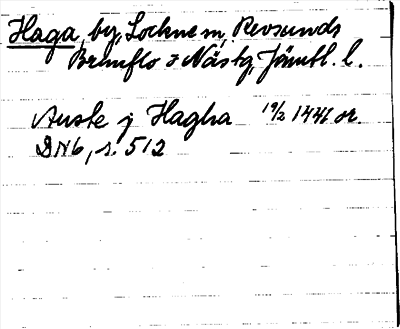 Haga, by, Lockne sn, Revsunds
Brunflo o Näs tg, Jämtl. l.
Auste j Hagha 19/2 1441 or.
DN 6, s. 512